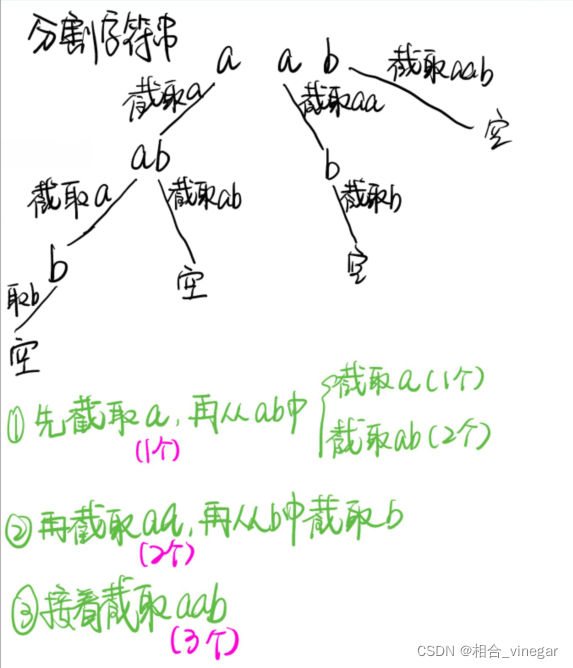 分割字符串
a a b
截取a
截取aa
截取aab
空
ab
b
截取a
截取ab
截取b
b
空
空
取b
空
①先截取a,再从ab中
截取a(1个)
截取ab(2个)
(1个)
②再截取aa,再从b中截取b
(2个)
③接着截取aab
(3个)
CSDN @相合_vinegar